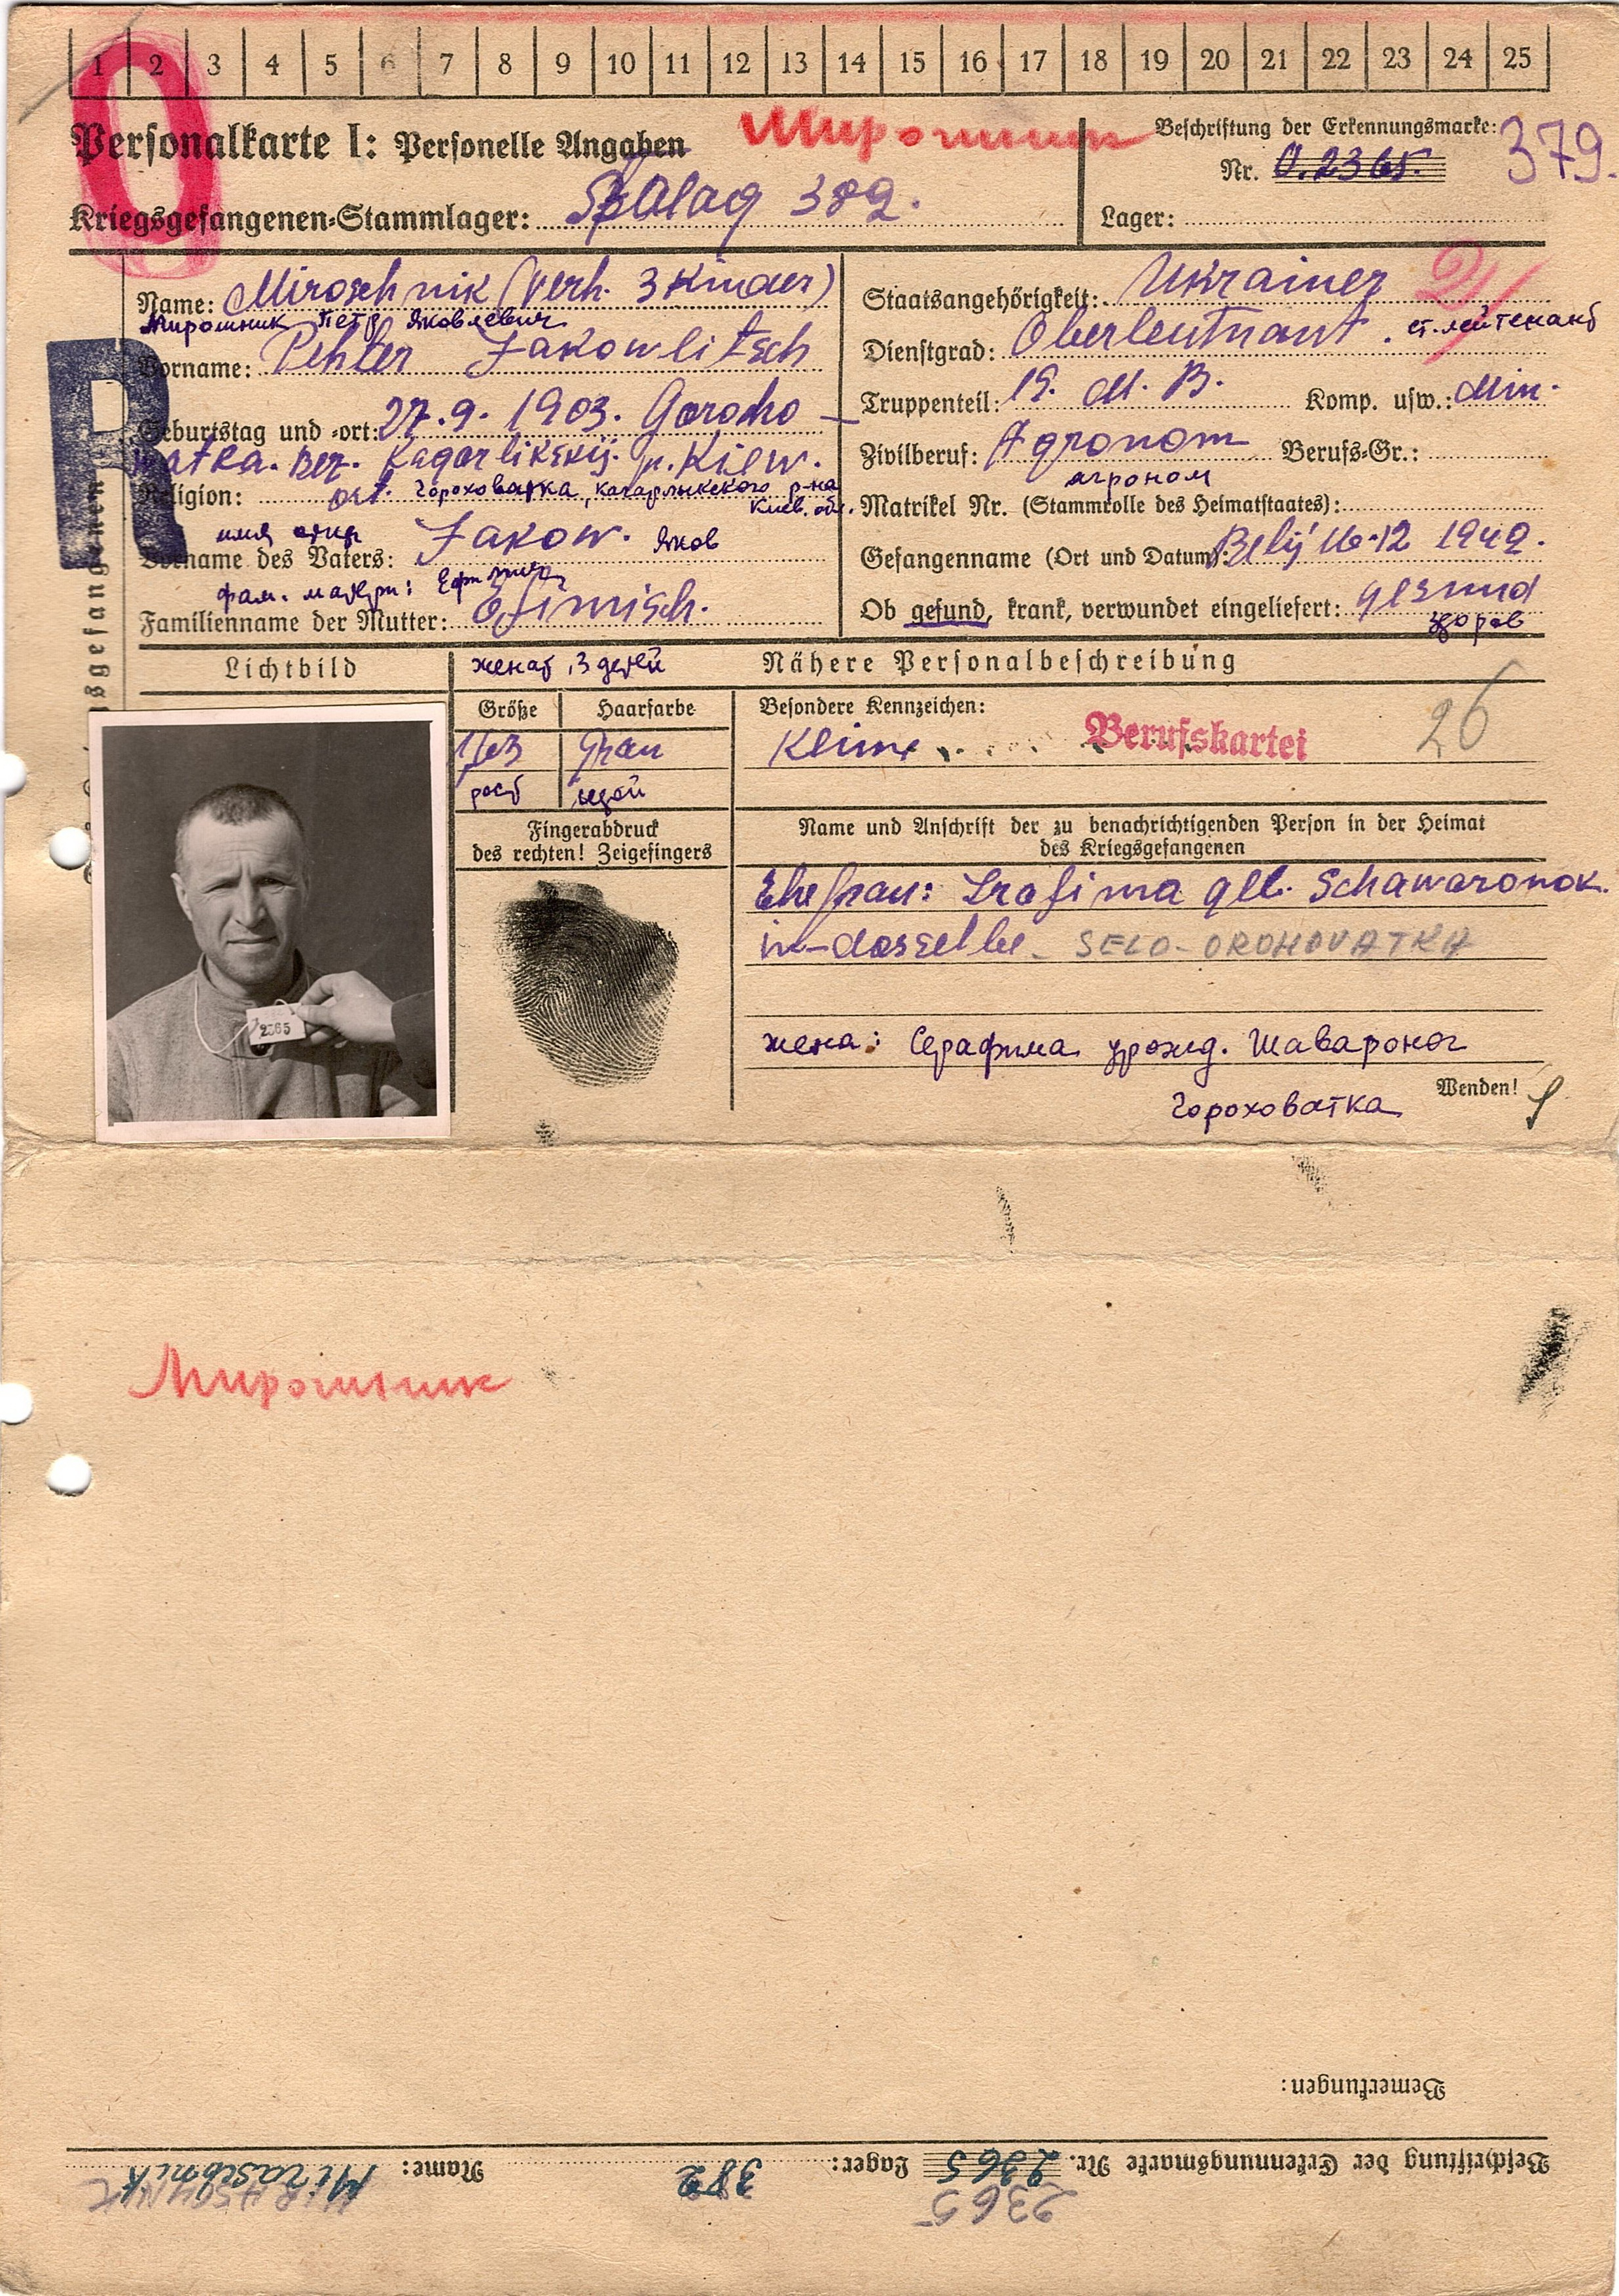 1 2 3 4 5 6 7 8 9 10 11 12 13 14 15 16 17 18 19 20 21 22 23 24 25
Personalkarte I: Personelle Angaben
Мирошник
Beschriftung der Erkennungsmarke:
Nr. 0.2365. 379.
Kriegsgefangenen-Stammlager: Stalag 382.
Lager:
Name: Miroschnik (Verh. 3 Kinder)
Мирошник Петр Яковлевич
Vorname: Pehter Jakowlitsch
Geburtstag und -ort: 27.9.1903. Gorocho-
watka. Bez. Kagarlikskij. p. Kiew.
Religion:
Гороховатка, Кагарлыкского р-на
Киев. обл.
имя отца
Vorname des Vaters: Jakow. Яков
фам. матери:
Familienname der Mutter: Efimisch.
Staatsangehörigkeit: Ukrainer
Dienstgrad: Oberleutnant. ст. лейтенант
Truppenteil: 19. M. B. Komp. usw.: Min.
Zivilberuf: Agronom Berufs-Gr.:
агроном
Matrikel Nr. (Stammrolle des Heimatstaates):
Gefangenname (Ort und Datum): Belÿ 16.12 1942.
Ob gesund, krank, verwundet eingeliefert: gesund
здоров
R
Lichtbild
женат, 3 детей
Nähere Personalbeschreibung
Größe Haarfarbe
1,63 Grau
рост седой
Besondere Kennzeichen:
Keine
Berufskartei
26
Fingerabdruck
des rechten! Zeigefingers
Name und Anschrift der zu benachrichtigenden Person in der Heimat
des Kriegsgefangenen
Ehefrau: Srafima geb. Schawaronok.
in-dasselbe- SELO-OROHOVATKA
жена: Серафима урожд. Шаваронок
Гороховатка
Wenden!
2365
Мирошник
Bemerkungen:
Beschriftung der Erkennungsmarke Nr. 2365 Lager: 382 Name: Miraschnik
2365 MIRASCHNIK